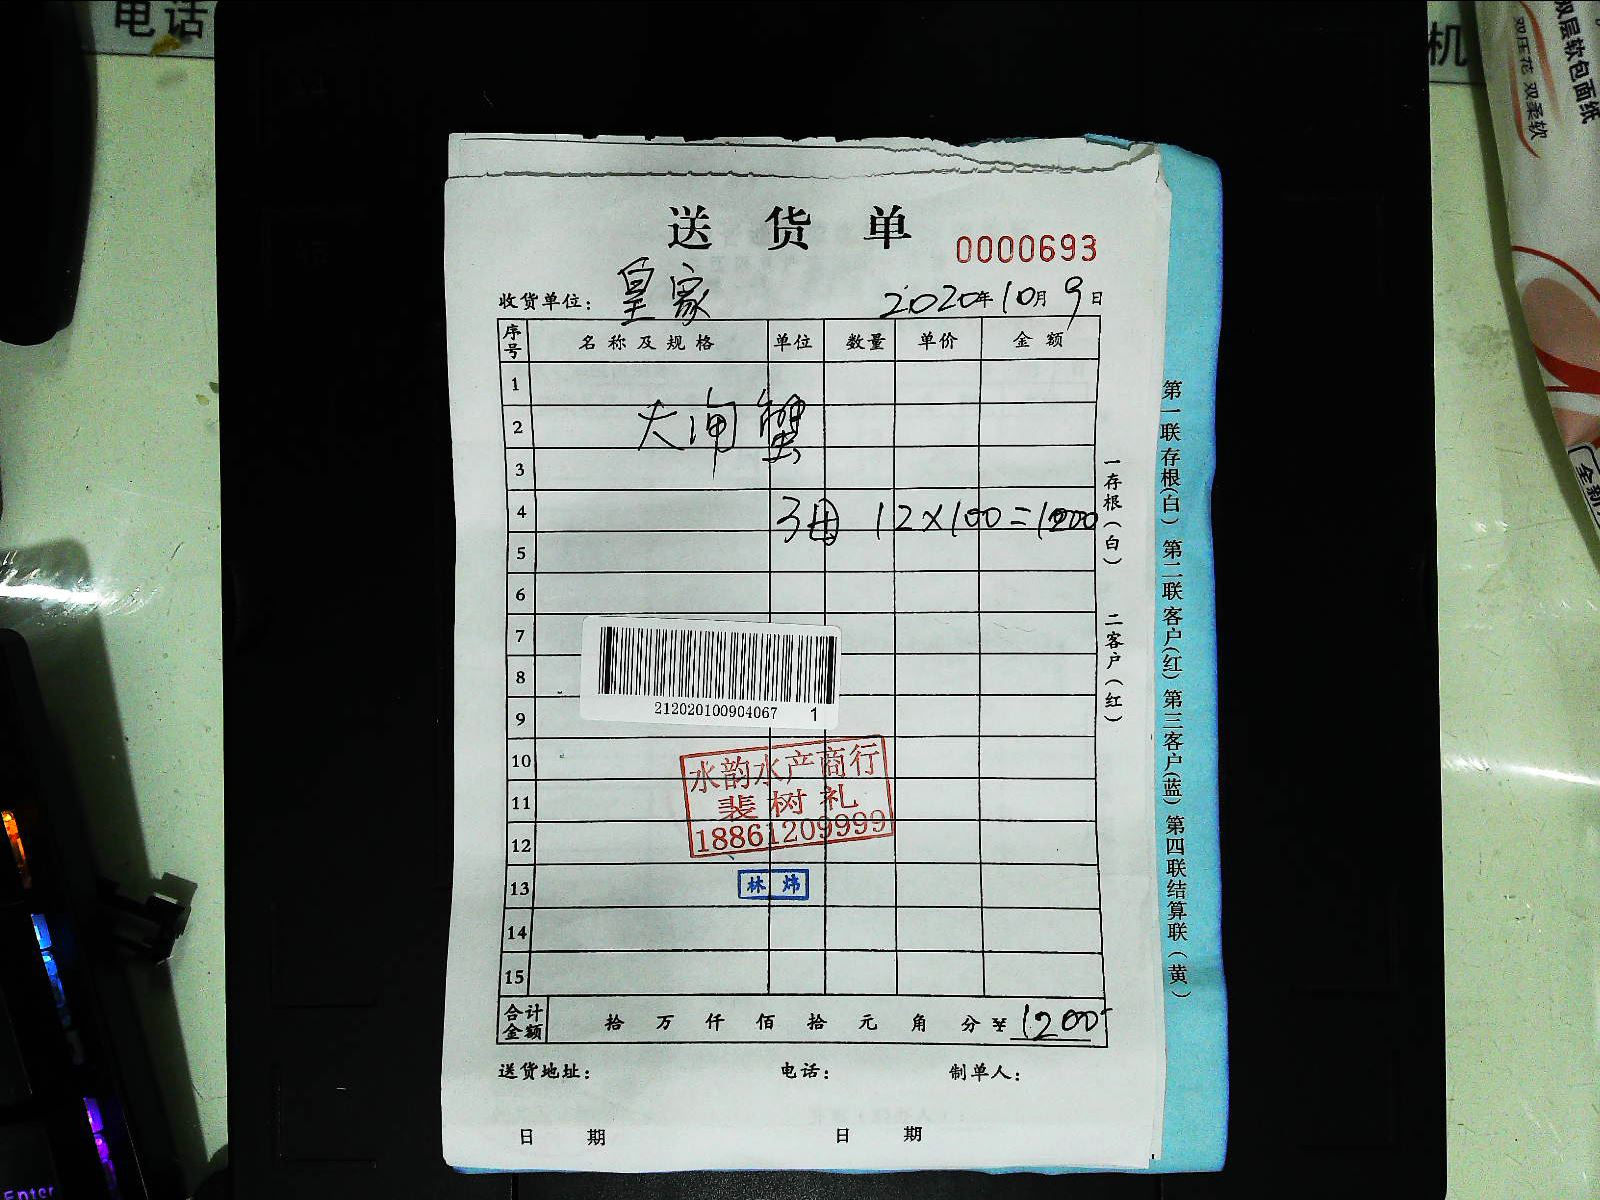 电话
机
双层软包面纸
双压花 双柔软
全新
送货单
0000693
收货单位： 皇家 2020年10月9日
序号 名称及规格 单位 数量 单价 金额
1
2 大闸蟹
3
4 3母 12×100=1200
5
6
7
8
9
212020100904067 1
10
11
12
水韵水产商行
裴树礼
18861209999
13
林炜
14
15
合计金额 拾 万 仟 佰 拾 元 角 分 ¥ 1200
送货地址： 电话： 制单人：
日 期 日 期
一存根（白） 二客户（红）
第一联存根（白） 第二联客户（红） 第三客户（蓝） 第四联结算联（黄）
Enter